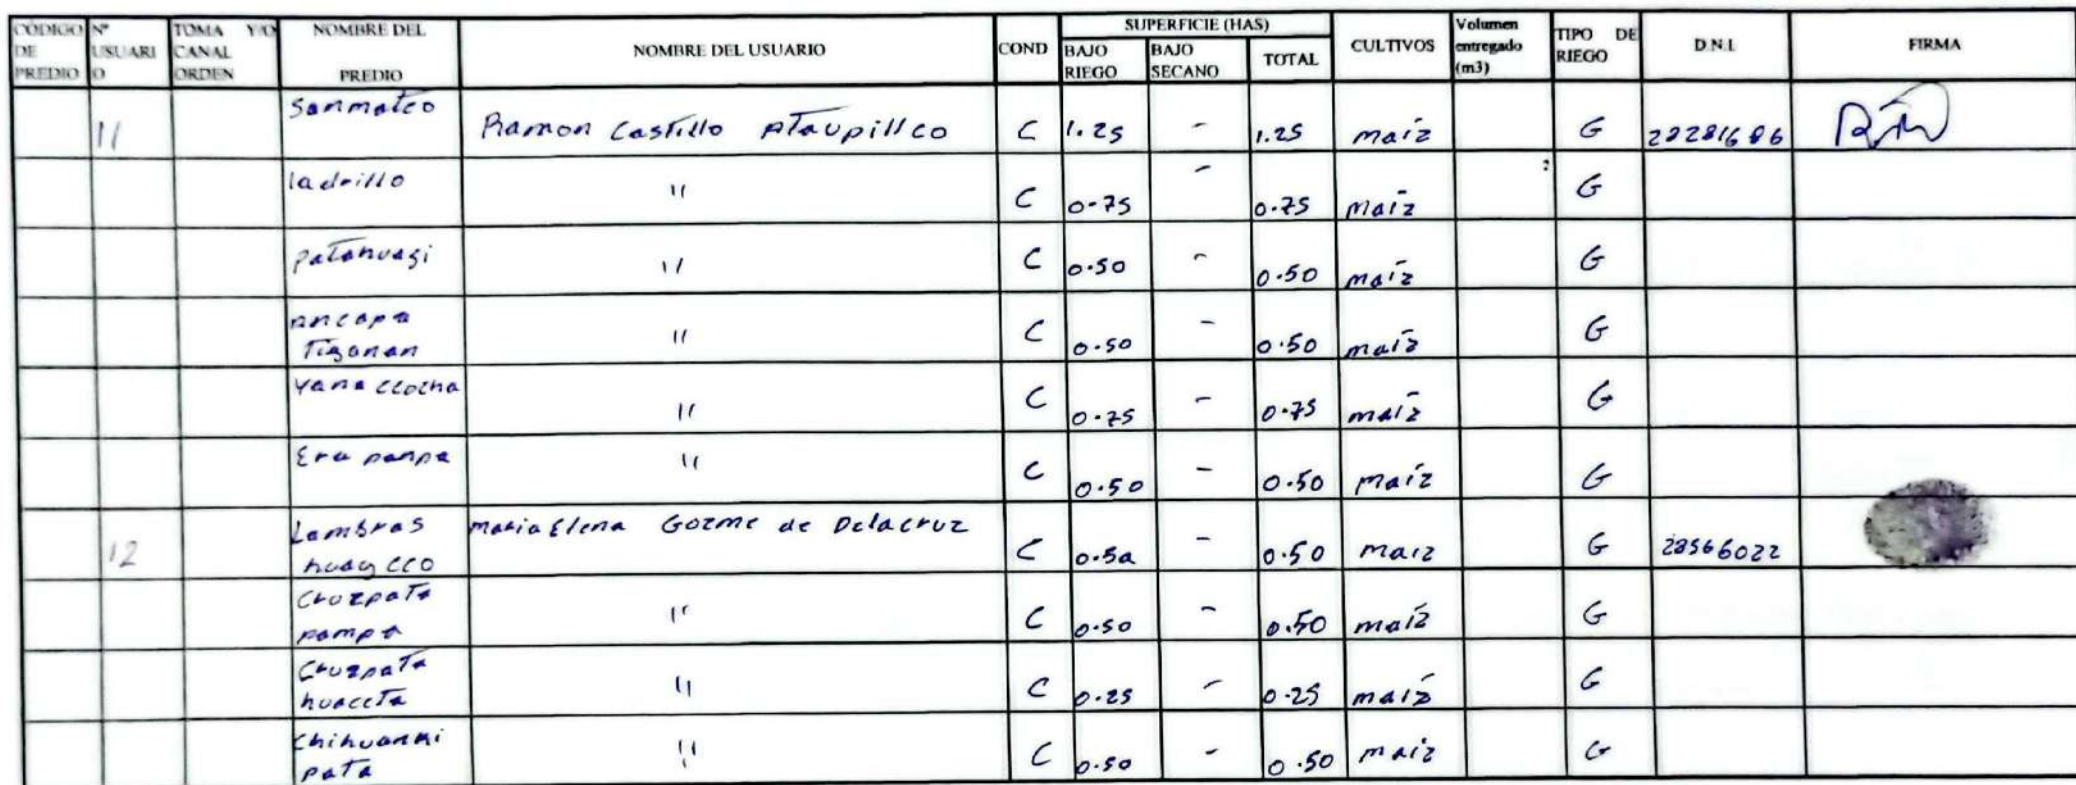 CÓDIGO DE PREDIO Nº USUARIO TOMA Y/O CANAL ORDEN NOMBRE DEL PREDIO NOMBRE DEL USUARIO COND SUPERFICIE (HAS) BAJO RIEGO BAJO SECANO TOTAL CULTIVOS Volumen entregado (m3) TIPO DE RIEGO D.N.I. FIRMA
11 Sanmateo Ramon Castillo Ataupillco C 1.25 - 1.25 maíz G 28281686
ladrillo " C 0.75 - 0.75 maíz G
patahuasi " C 0.50 - 0.50 maíz G
ancapa Tiyanan " C 0.50 - 0.50 maíz G
Yana ccocha " C 0.75 - 0.75 maíz G
Era pampa " C 0.50 - 0.50 maíz G
12 Lambras huaycco Maria Elena Gozme de Delacruz C 0.50 - 0.50 maiz G 28566022
Cruzpata pampa " C 0.50 - 0.50 maíz G
Cruzpata huaccta " C 0.25 - 0.25 maíz G
Chihuanki pata " C 0.50 - 0.50 maíz G